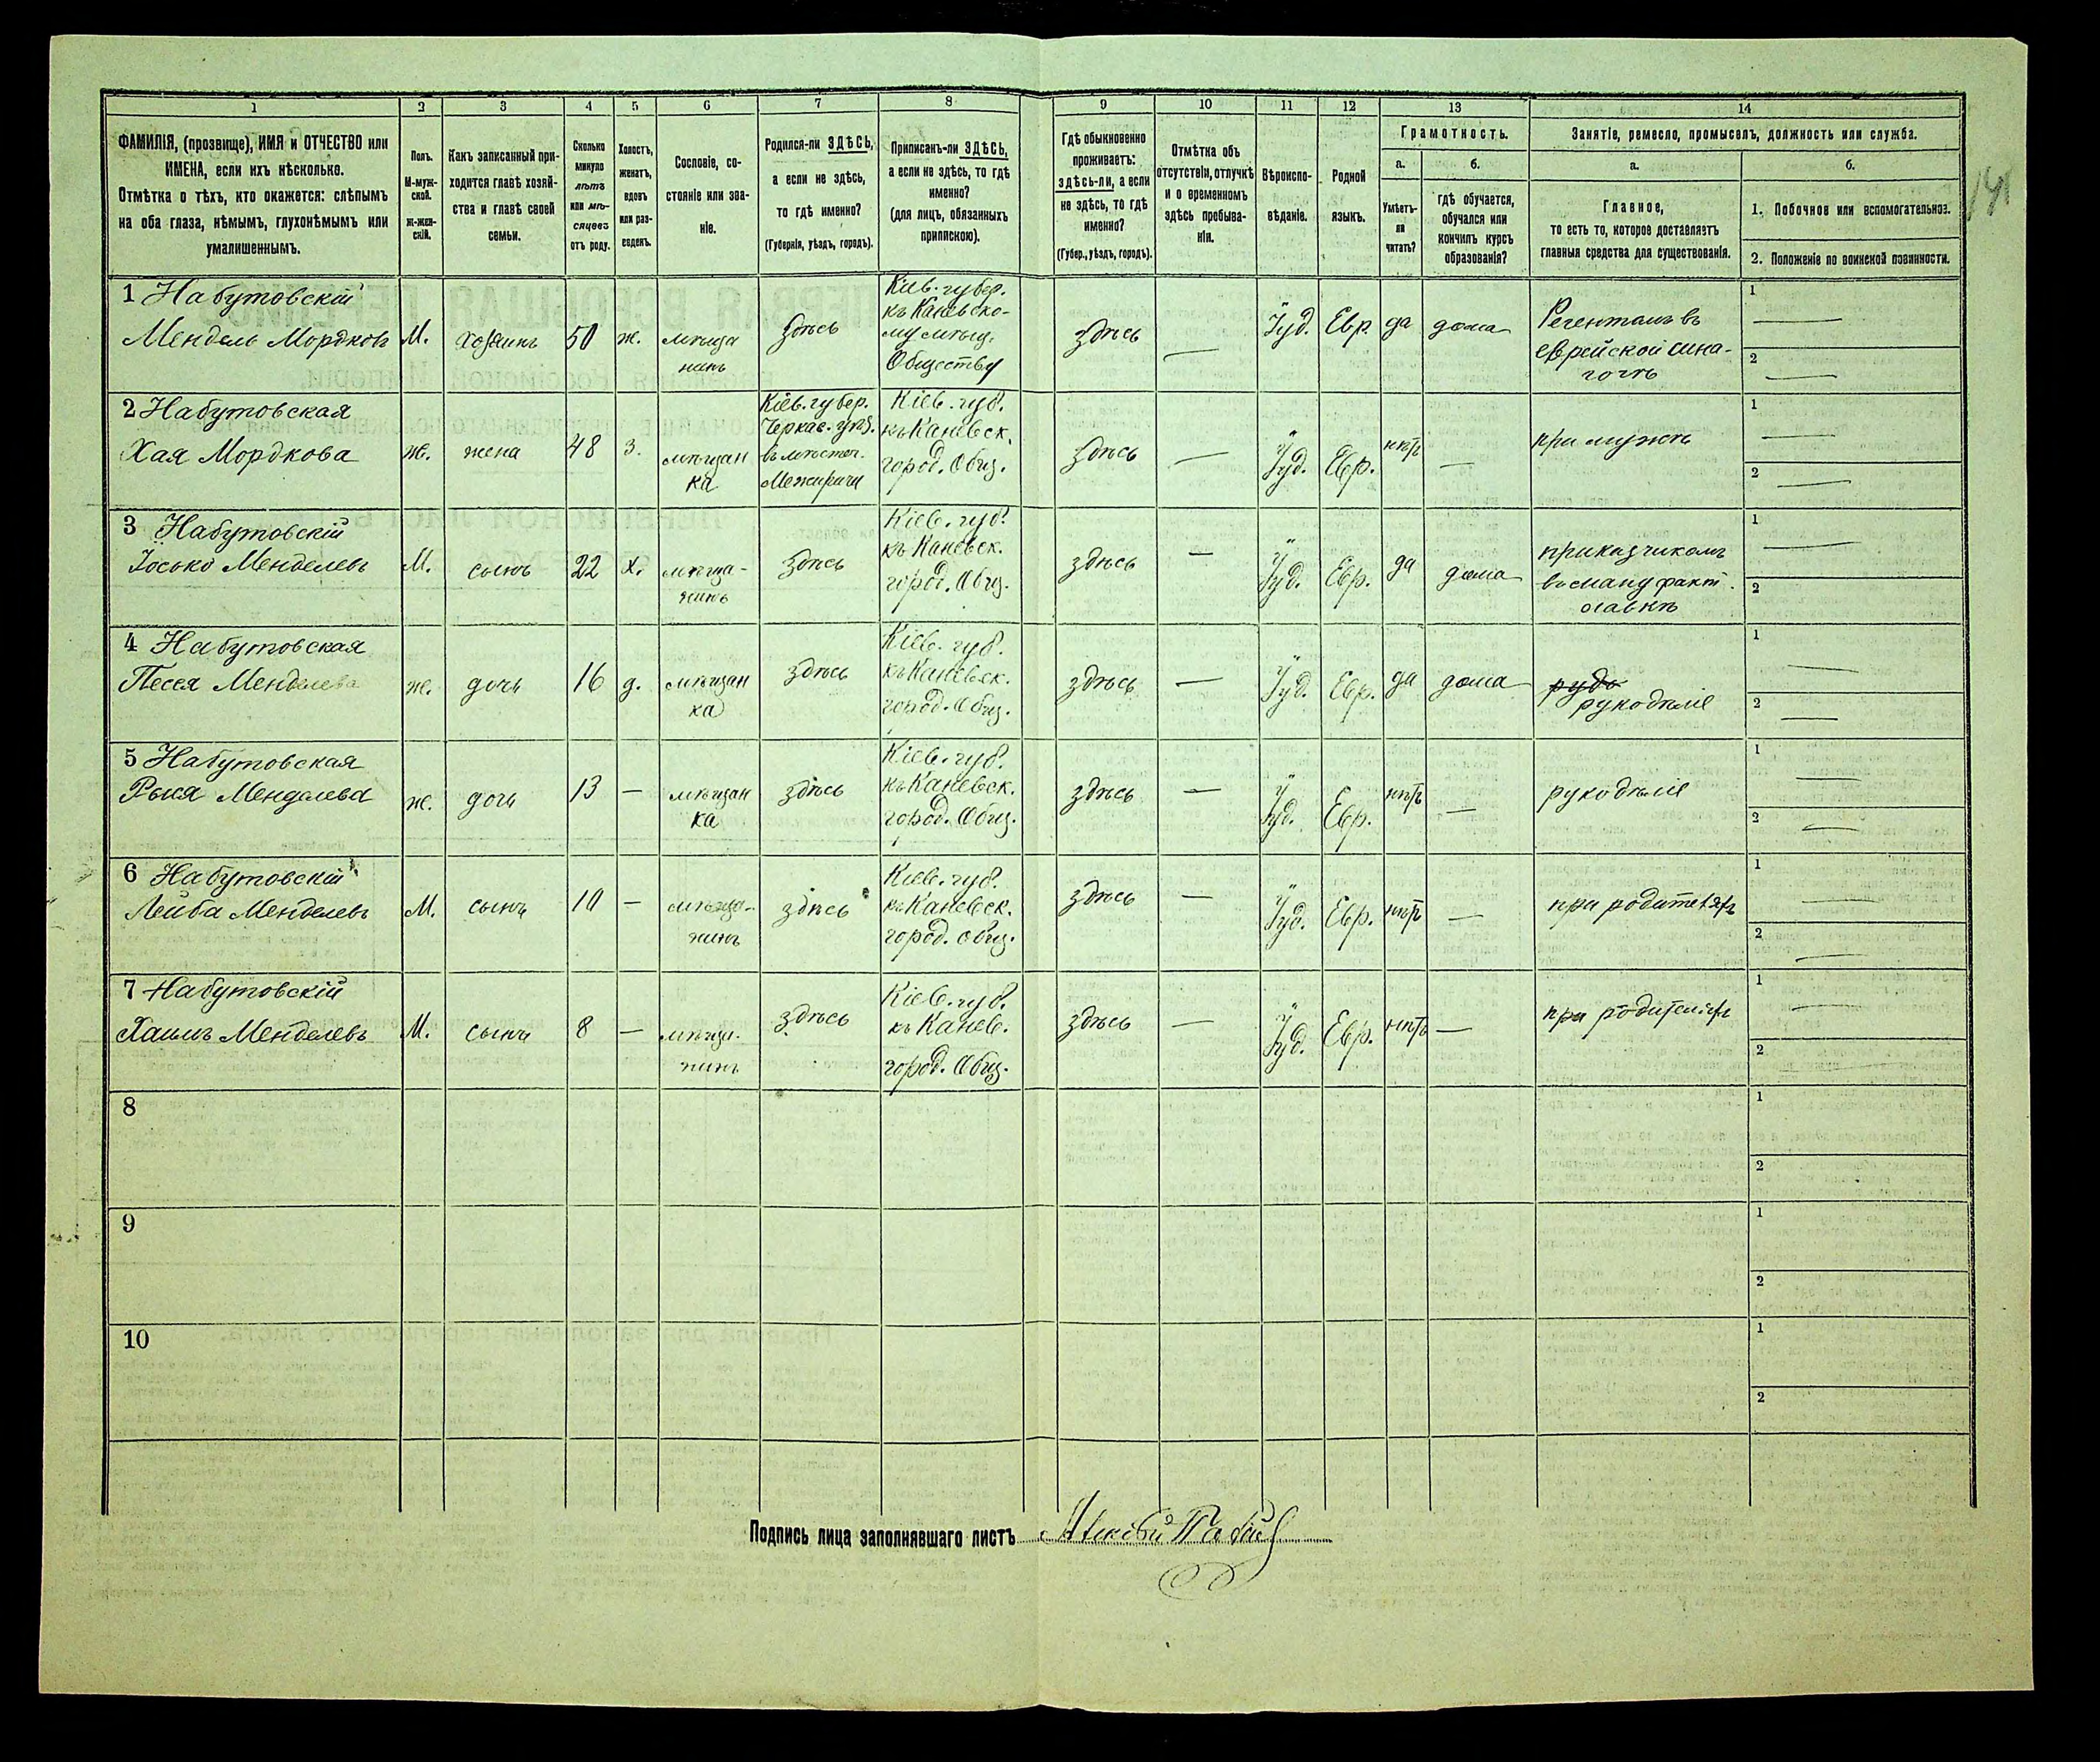 1 2 3 4 5 6 7 8 9 10 11 12 13 14
ФАМИЛІЯ, (прозвище), ИМЯ и ОТЧЕСТВО или
ИМЕНА, если ихъ нѣсколько.
Отмѣтка о тѣхъ, кто окажется: слѣпымъ
на оба глаза, нѣмымъ, глухонѣмымъ или
умалишеннымъ.
Полъ.
М-муж-
ской.
Ж-жен-
скій.
Какъ записанный при-
ходится главѣ хозяй-
ства и главѣ своей
семьи.
Сколько
минуло
лѣтъ
или мѣ-
сяцевъ
отъ роду.
Холостъ,
женатъ,
вдовъ
или раз-
веденъ.
Сословіе, со-
стояніе или зва-
ніе.
Родился-ли ЗДѢСЬ,
а если не здѣсь,
то гдѣ именно?
(Губернія, уѣздъ, городъ).
Приписанъ-ли ЗДѢСЬ,
а если не здѣсь, то гдѣ
именно?
(для лицъ, обязанныхъ
припискою).
Гдѣ обыкновенно
проживаетъ:
здѣсь-ли, а если
не здѣсь, то гдѣ
именно?
(Губер., уѣздъ, городъ).
Отмѣтка объ
отсутствіи, отлучкѣ
и о временномъ
здѣсь пребыва-
ніи.
Вѣроиспо-
вѣданіе.
Родной
языкъ.
Грамотность.
а.
Умѣетъ-
ли
читать?
б.
гдѣ обучается,
обучался или
кончилъ курсъ
образованія?
Занятіе, ремесло, промыселъ, должность или служба.
а.
Главное,
то есть то, которое доставляетъ
главныя средства для существованія.
б.
1. Побочное или вспомогательное.
2. Положеніе по воинской повинности.
1 Набутовскій
Мендель Мордковъ
М.
хозяинъ
50
ж.
мѣща
нинъ
здѣсь
Кіев. губер.
къ Каневско-
му мѣщ.
Обществу
здѣсь
—
Іуд.
Евр.
да
дома
Регентомъ въ
еврейской сина-
гогѣ
1 —
2 —
2 Набутовская
Хая Мордкова
ж.
жена
48
з.
мѣщан
ка
Кіев. губер.
Черкас. уѣз.
въ мѣстеч.
Межиричи
Кіев. губ.
къ Каневск.
город. Общ.
здѣсь
—
Іуд.
Евр.
нѣтъ
—
при мужѣ
1 —
2 —
3 Набутовскій
Іосько Менделевъ
М.
сынъ
22
х.
мѣща-
нинъ
здѣсь
Кіев. губ.
къ Каневск.
город. Общ.
здѣсь
—
Іуд.
Евр.
да
дома
приказчикомъ
въ мануфакт.
лавкѣ
1 —
2
4 Набутовская
Песся Менделева
ж.
дочь
16
д.
мѣщан
ка
здѣсь
Кіев. губ.
къ Каневск.
город. Общ.
здѣсь
—
Іуд.
Евр.
да
дома
рудо
рукодѣліе
1 —
2 —
5 Набутовская
Рыся Менделева
ж.
дочь
13
—
мѣщан
ка
здѣсь
Кіев. губ.
къ Каневск.
город. Общ.
здѣсь
—
Іуд.
Евр.
нѣтъ
—
рукодѣліе
1 —
2 —
6 Набутовскій
Лейба Менделевъ
М.
сынъ
10
—
мѣща-
нинъ
здѣсь
Кіев. губ.
къ Каневск.
город. общ.
здѣсь
—
Іуд.
Евр.
нѣтъ
—
при родителяхъ
1 —
2 —
7 Набутовскій
Хаимъ Менделевъ
М.
сынъ
8
—
мѣща-
нинъ
здѣсь
Кіев. губ.
къ Канев.
город. Общ.
здѣсь
—
Іуд.
Евр.
нѣтъ
—
при родителяхъ
1 —
2 —
8
1
2
9
1
2
10
1
2
Подпись лица заполнявшаго листъ